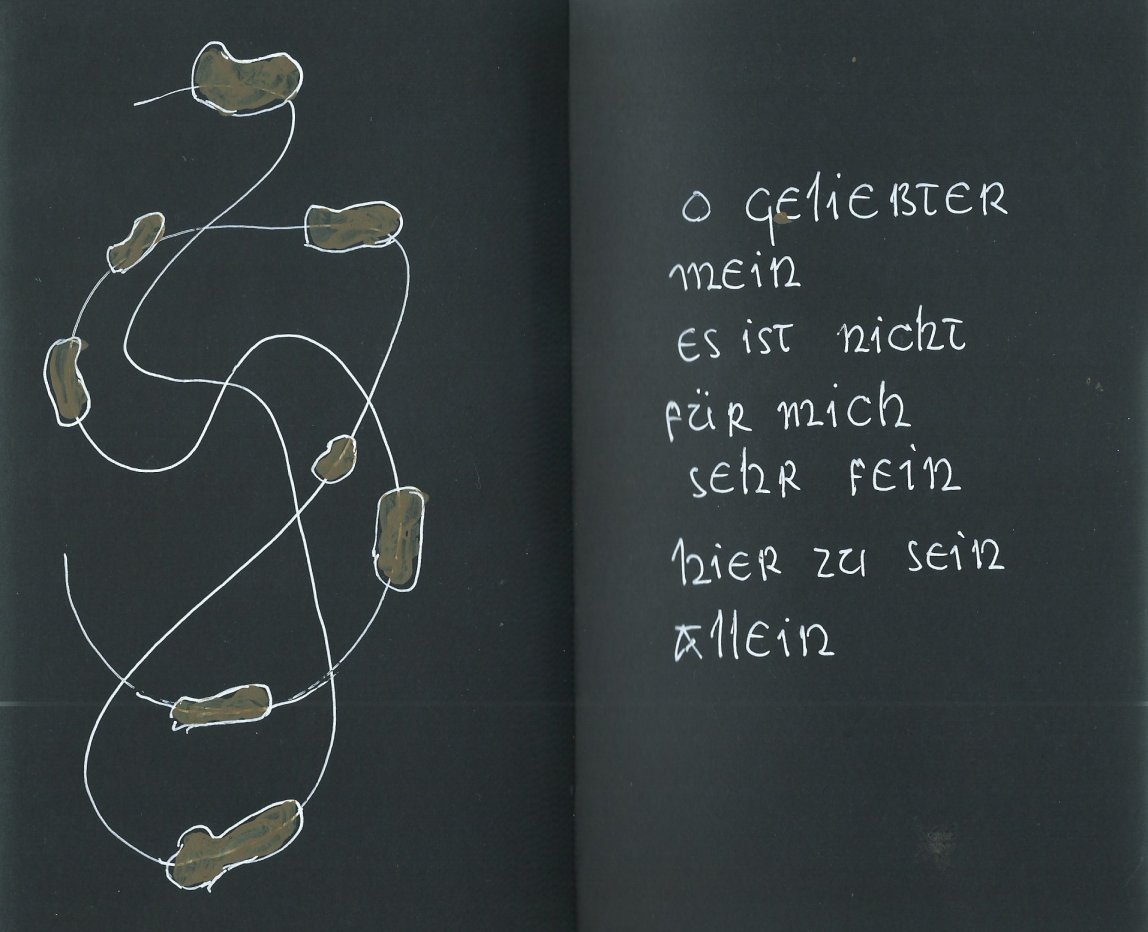 o GElieBTER
mEin
Es isT nichT
füR mich
sEhR fEin
hiER zu sEin
AllEin